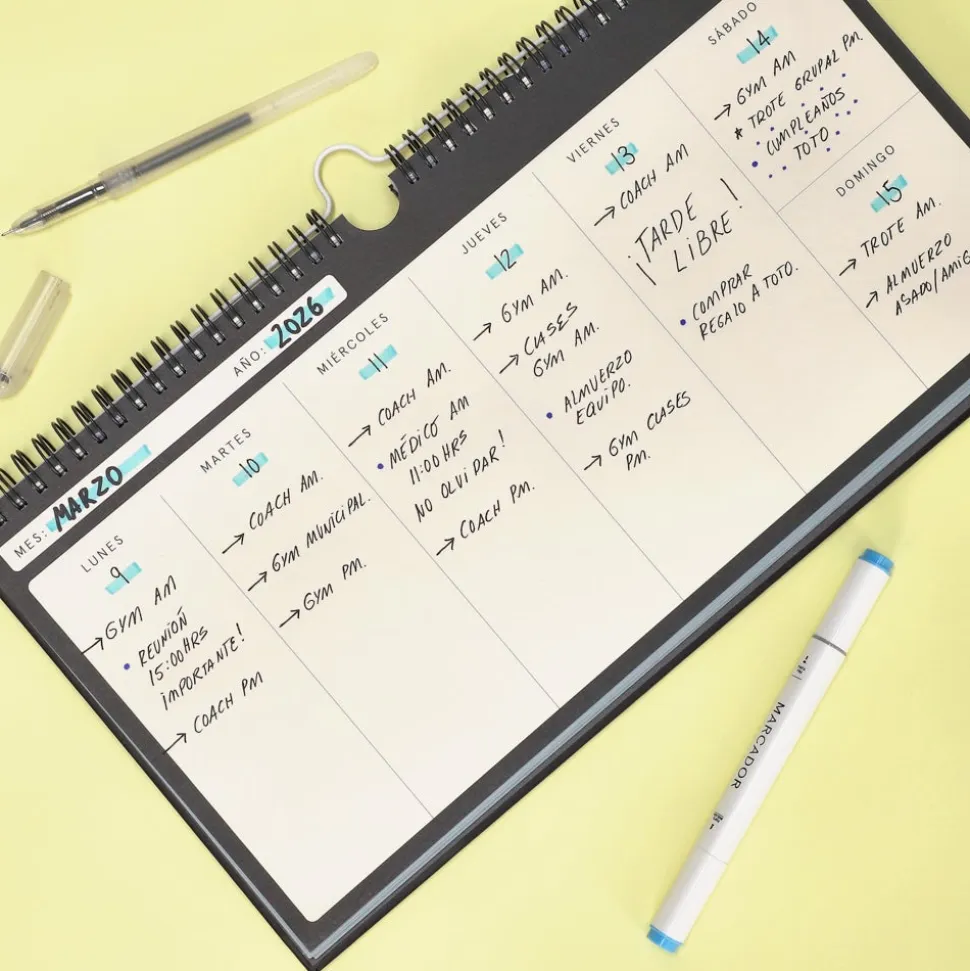 MES: MARZO
AÑO: 2026
LUNES
9
→ GYM AM
• REUNIÓN
15:00 HRS
IMPORTANTE!
→ COACH PM
MARTES
10
→ COACH AM.
→ GYM MUNICIPAL.
→ GYM PM.
MIÉRCOLES
11
→ COACH AM.
• MÉDICO AM
11:00 HRS
NO OLVIDAR!
→ COACH PM.
JUEVES
12
→ GYM AM.
→ CLASES
GYM AM.
• ALMUERZO
EQUIPO.
→ GYM CLASES
PM.
VIERNES
13
→ COACH AM
¡TARDE
LIBRE!
• COMPRAR
REGALO A TOTO.
SÁBADO
14
→ GYM AM
* TROTE GRUPAL PM.
CUMPLEAÑOS
TOTO
DOMINGO
15
→ TROTE AM.
→ ALMUERZO
ASADO/AMIG
MARCADOR